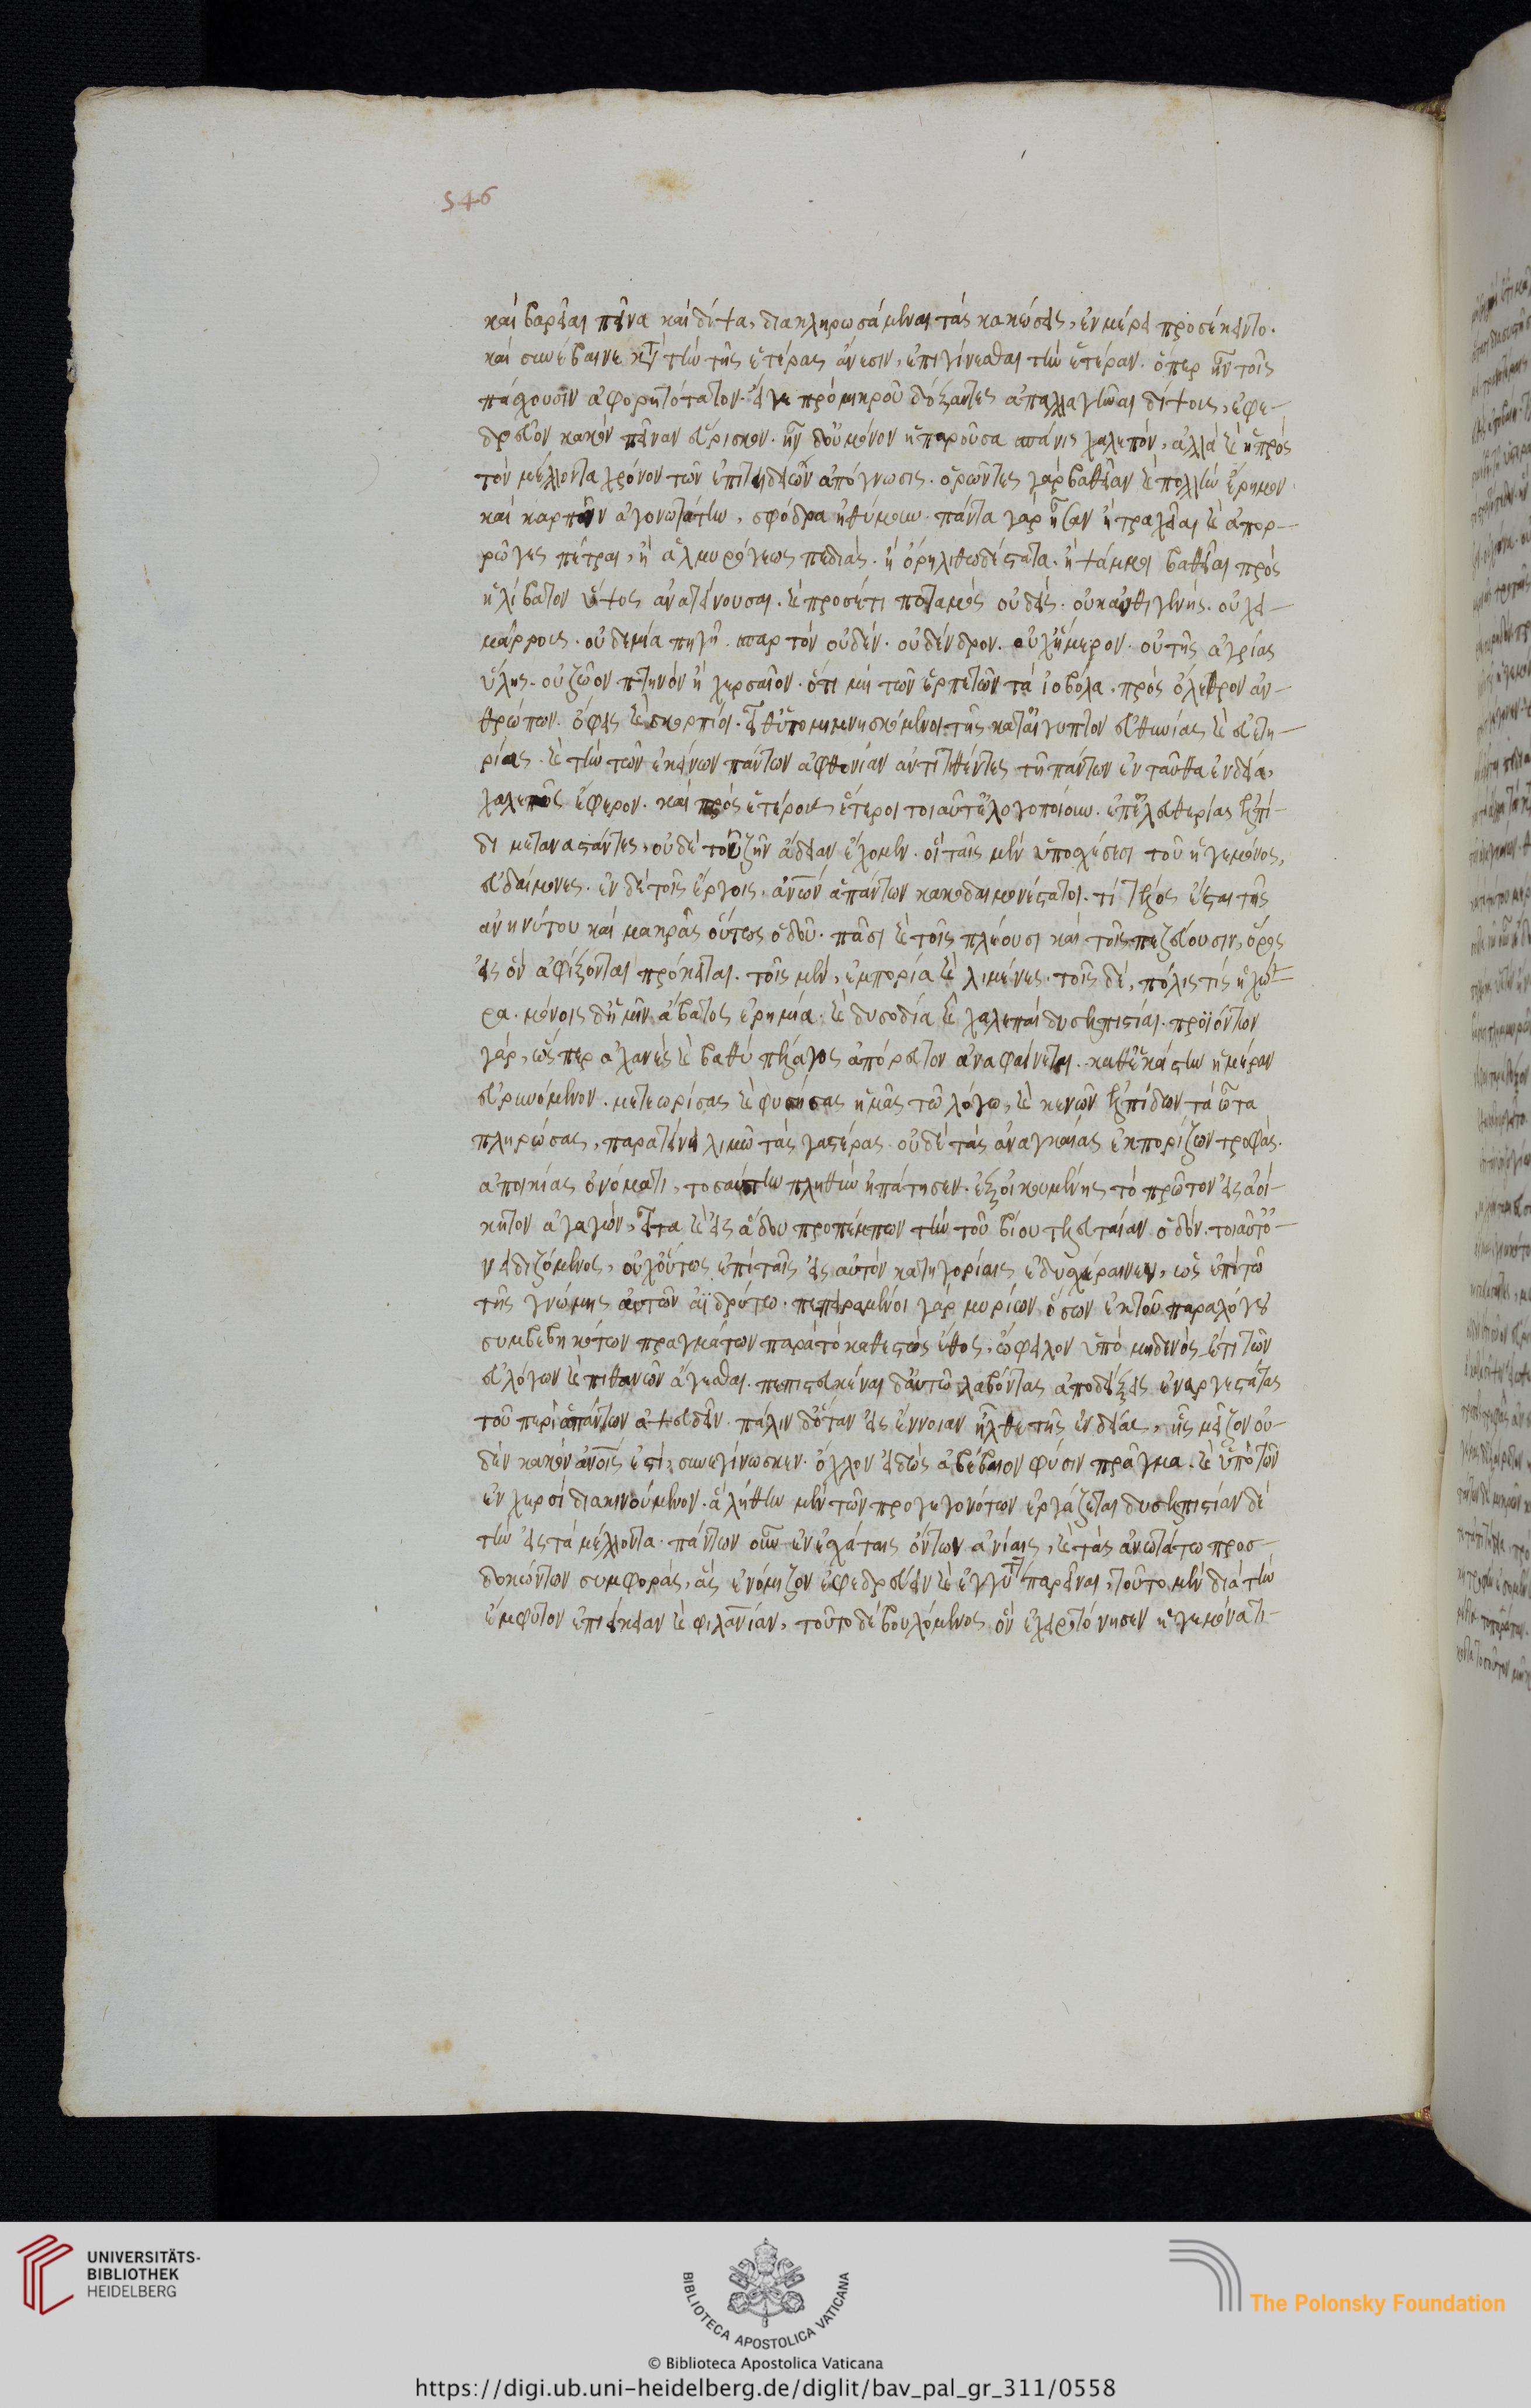 546
καὶ βαρεῖαι πεῖνα καὶ δίψα, διακληρωσάμεναι τὰς κακώσεις, ἐν μέρει προσέκειντο.
καὶ συνέβαινε κατὰ τὴν τῆς ἑτέρας ἄνεσιν, ἐπιγίνεσθαι τὴν ἑτέραν. ὅπερ ἦν τοῖς
πάσχουσιν ἀφορητότατον. εἴ γε πρὸ μικροῦ δόξαντες ἀπαλλαγῆναι δίψους, ἐφε-
δρεῦον κακὸν πεῖναν εὕρισκον. ἦν δ' οὐ μόνον ἡ παροῦσα σπάνις χαλεπόν, ἀλλὰ καὶ ἡ πρὸς
τὸν μέλλοντα χρόνον τῶν ἐπιτηδείων ἀπόγνωσις. ὁρῶντες γὰρ βαθεῖαν καὶ πολλὴν ἔρημον
καὶ καρπῶν ἀγονωτάτην, σφόδρα ἠθύμουν. πάντα γὰρ ἦσαν ἢ τραχεῖαι καὶ ἀπορ-
ρῶγες πέτραι, ἢ ἁλμυρόγεως πεδιάς. ἢ ὄρη λιθωδέστατα. ἢ ψάμμοι βαθεῖαι πρὸς
ἠλίβατον ὕψος ἀνατείνουσαι. καὶ προσέτι ποταμὸς οὐδείς. οὐκ αὐθιγενής. οὐ χει-
μάρρους. οὐδεμία πηγή. σπαρτὸν οὐδέν. οὐ δένδρον. οὐχ ἥμερον. οὐ τῆς ἀγρίας
ὕλης. οὐ ζῶον πτηνὸν ἢ χερσαῖον. ὅτι μὴ τῶν ἑρπετῶν τὰ ἰοβόλα. πρὸς ὄλεθρον ἀν-
θρώπων. ὄφεις καὶ σκορπίοι. εἶθ' ὑπομιμνησκόμενοι τῆς κατ' αἴγυπτον εὐθηνίας καὶ εὐετη-
ρίας. καὶ τὴν τῶν ἐκείνων πάντων ἀφθονίαν ἀντιτιθέντες τῇ πάντων ἐνταῦθα ἐνδείᾳ,
χαλεπῶς ἔφερον. καὶ πρὸς ἑτέρους ἕτεροι τοιαῦτ' ἐλογοποίουν. ἐπ' ἐλευθερίας ἐλπί-
δι μεταναστάντες, οὐδὲ τοῦ ζῆν ἄδειαν ἔχομεν. οἱ ταῖς μὲν ὑποσχέσεσι τοῦ ἡγεμόνος,
εὐδαίμονες. ἐν δὲ τοῖς ἔργοις, ἀνων ἁπάντων κακοδαιμονέστατοι. τί τέλος ἔσται τῆς
ἀνηνύτου καὶ μακρᾶς οὕτως ὁδοῦ. πᾶσι καὶ τοῖς πλέουσι καὶ τοῖς πεζεύουσιν, ὅρος
εἰς ὃν ἀφίξονται πρόκειται. τοῖς μὲν, ἐμπορία καὶ λιμένες. τοῖς δὲ, πόλις τίς ἢ χώ-
ρα. μόνοις δ' ἡμῖν ἄβατος ἐρημία. καὶ δυσοδία καὶ χαλεπαὶ δυσελπιστίαι. προϊόντων
γὰρ, ὥσπερ ἀχανὲς καὶ βαθὺ πέλαγος ἀπόρευτον ἀναφαίνεται. καθ' ἑκάστην ἡμέραν
εὐρυνόμενον. μετεωρίσας καὶ φυσήσας ἡμᾶς τῷ λόγῳ, καὶ κενῶν ἐλπίδων τὰ ὦτα
πληρώσας, παρατείνει λιμῷ τὰς γαστέρας οὐδὲ τὰς ἀναγκαίας ἐκπορίζων τροφάς.
ἀποικίας ὀνόματι, τοσαύτην πληθὺν ἠπάτησεν. ἐξ οἰκουμένης τὸ πρῶτον εἰς ἀοί-
κητον ἀγαγὼν, εἶτα καὶ εἰς ἅδου προπέμπων τὴν τοῦ βίου τελευταίαν ὁδόν. τοιαῦτ' ὀ-
νειδιζόμενος, οὐχ οὕτως ἐπὶ ταῖς εἰς αὐτὸν κατηγορίαις ἐδυσχέραινεν, ὡς ἐπὶ τῷ
τῆς γνώμης αὐτῶν ἀϊδρύτῳ. πεπειραμένοι γὰρ μυρίων ὅσων ἐκ τοῦ παραλόγου
συμβεβηκότων πραγμάτων παρὰ τὸ καθεστὼς ἔθος, ὤφειλον ὑπὸ μηδενὸς ἔτι τῶν
εὐλόγων καὶ πιθανῶν ἄγεσθαι. πεπιστευκέναι δ' αὐτῷ λαβόντας ἀποδείξεις ἐναργεστάτας
τοῦ περὶ ἁπάντων ἀψευδεῖν. πάλιν δ' ὅταν εἰς ἔννοιαν ἦλθε τῆς ἐνδείας, ἧς μεῖζον οὐ-
δὲν κακὸν ἀνοις ἐστί, συνεγίνωσκεν. ὄχλον εἰδὼς ἀβέβαιον φύσει πρᾶγμα. καὶ ὑπὸ τῶν
ἐν χερσὶ διακινούμενον. ἃ λήθην μὲν τῶν προγεγονότων ἐργάζεται δυσελπιστίαν δὲ
τὴν εἰς τὰ μέλλοντα. πάντων οὖν ἐν ἐσχάταις ὄντων ἀνίαις, καὶ τὰς ἀνωτάτω προσ-
δοκώντων συμφορὰς, ἃς ἐνόμιζον ἐφεδρεύειν καὶ ἐγγυτάτω παρεῖναι, τοῦτο μὲν διὰ τὴν
ἔμφυτον ἐπιείκειαν καὶ φιλανίαν, τοῦτο δὲ βουλόμενος ὃν ἐχειροτόνησεν ἡγεμόνα τι-
UNIVERSITÄTS-
BIBLIOTHEK
HEIDELBERG
BIBLIOTECA APOSTOLICA VATICANA
The Polonsky Foundation
© Biblioteca Apostolica Vaticana
https://digi.ub.uni-heidelberg.de/diglit/bav_pal_gr_311/0558